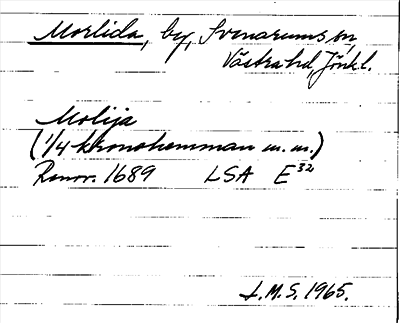 Morlida, by, Svenarums sn,
Västra hd, Jönk.l.
Molija
(1/4 kronohemman m.m.)
Rannr. 1689 LSA E³²
L.M.S. 1965.